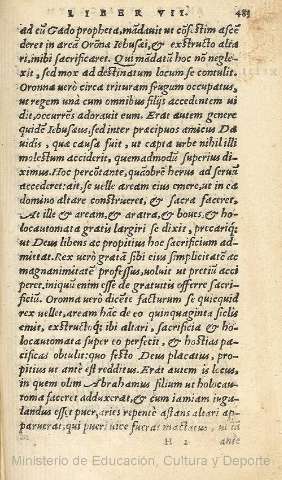 LIBER VII. 481
ad eũ Gado propheta, mãdauit ut cõfestim ascẽ
deret in areã Orõna Iebusai, & exstructo alta
ri, inibi sacrificaret. Qui mãdatũ hoc nõ negle-
xit, sed mox ad destinatum locum se contulit.
Oronna verò circa trituram frugum occupatus,
ut regem unà cum omnibus filijs accedentem ui
dit, occurrẽs adorauit eum. Erat autem genere
quidẽ Iebusæus, sed inter præcipuos amicus Da
uidis, qua causa fuit, ut capta urbe nihil illi
molestum acciderit, quemadmodũ superius di-
ximus. Hoc percõtante, quãobrẽ herus ad seruũ
accederet: ait, se uelle aream eius emere, ut in ea
domino altare construeret, & sacra faceret.
At ille & aream, & aratra, & boues, & ho-
locautomata gratis largiri se dixit, precariq;
ut Deus libens ac propitius hoc sacrificium ad-
mittat. Rex uerò gratã sibi eius simplicitatẽ ac
magnanimitatẽ professus, uoluit ut pretiũ acci
peret, iniquũ enim esse de gratuitis offerre sacri-
ficiũ. Oronna verò dicẽte facturum se quicquid
rex uellet, aream hãc de eo quinquaginta siclis
emit, exstructoq; ibi altari, sacrificia & ho-
locautomata super eo perfecit, & hostias pa-
cificas obtulit: quo festo Deus placatus, pro-
pitius ut ante est redditus. Erat autem is locus,
in quem olim Abrahamus filium ut holocau-
toma faceret adduxerat, & cum iamiam iugu-
landus esset puer, aries repente astans altari ap-
paruerat, qui pueri uice fuerat mactatus, ut iã
H 2 ante
Ministerio de Educación, Cultura y Deporte